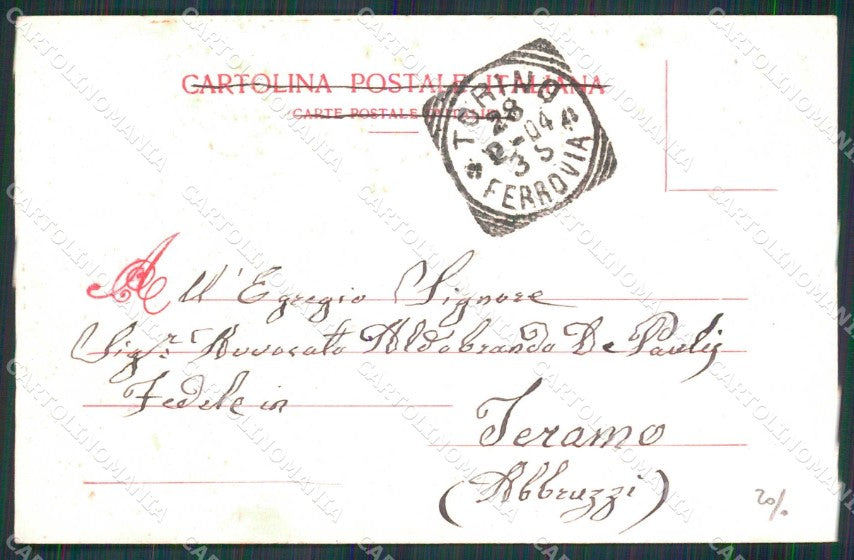 CARTOLINA POSTALE ITALIANA
CARTE POSTALE ITALIENNE
TORINO
28
12-04
3 S
* FERROVIA *
All' Egregio Signore
Sigr. Avvocato Aldobrando De Paulis
Fedele in
Teramo
(Abbruzzi)
20/
CARTOLINOMANIA